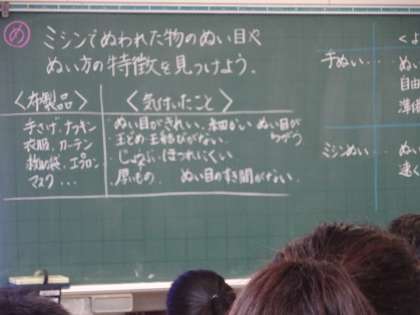 め ミシンでぬわれた物のぬい目や
ぬい方の特徴を見つけよう。
〈布製品〉 〈気付いたこと〉
手さげ、ナフキン
衣服、カーテン
給食袋、エプロン
マスク...
ぬい目がきれい、細かい ぬい目が
ちがう
玉どめ 玉結びがない。
・じょうぶ・ほつれにくい
・厚いもの。 ぬい目のすき間がない。
手ぬい...
ミシンぬい...
〈よ
ぬい
自由
準備
ぬい
速く